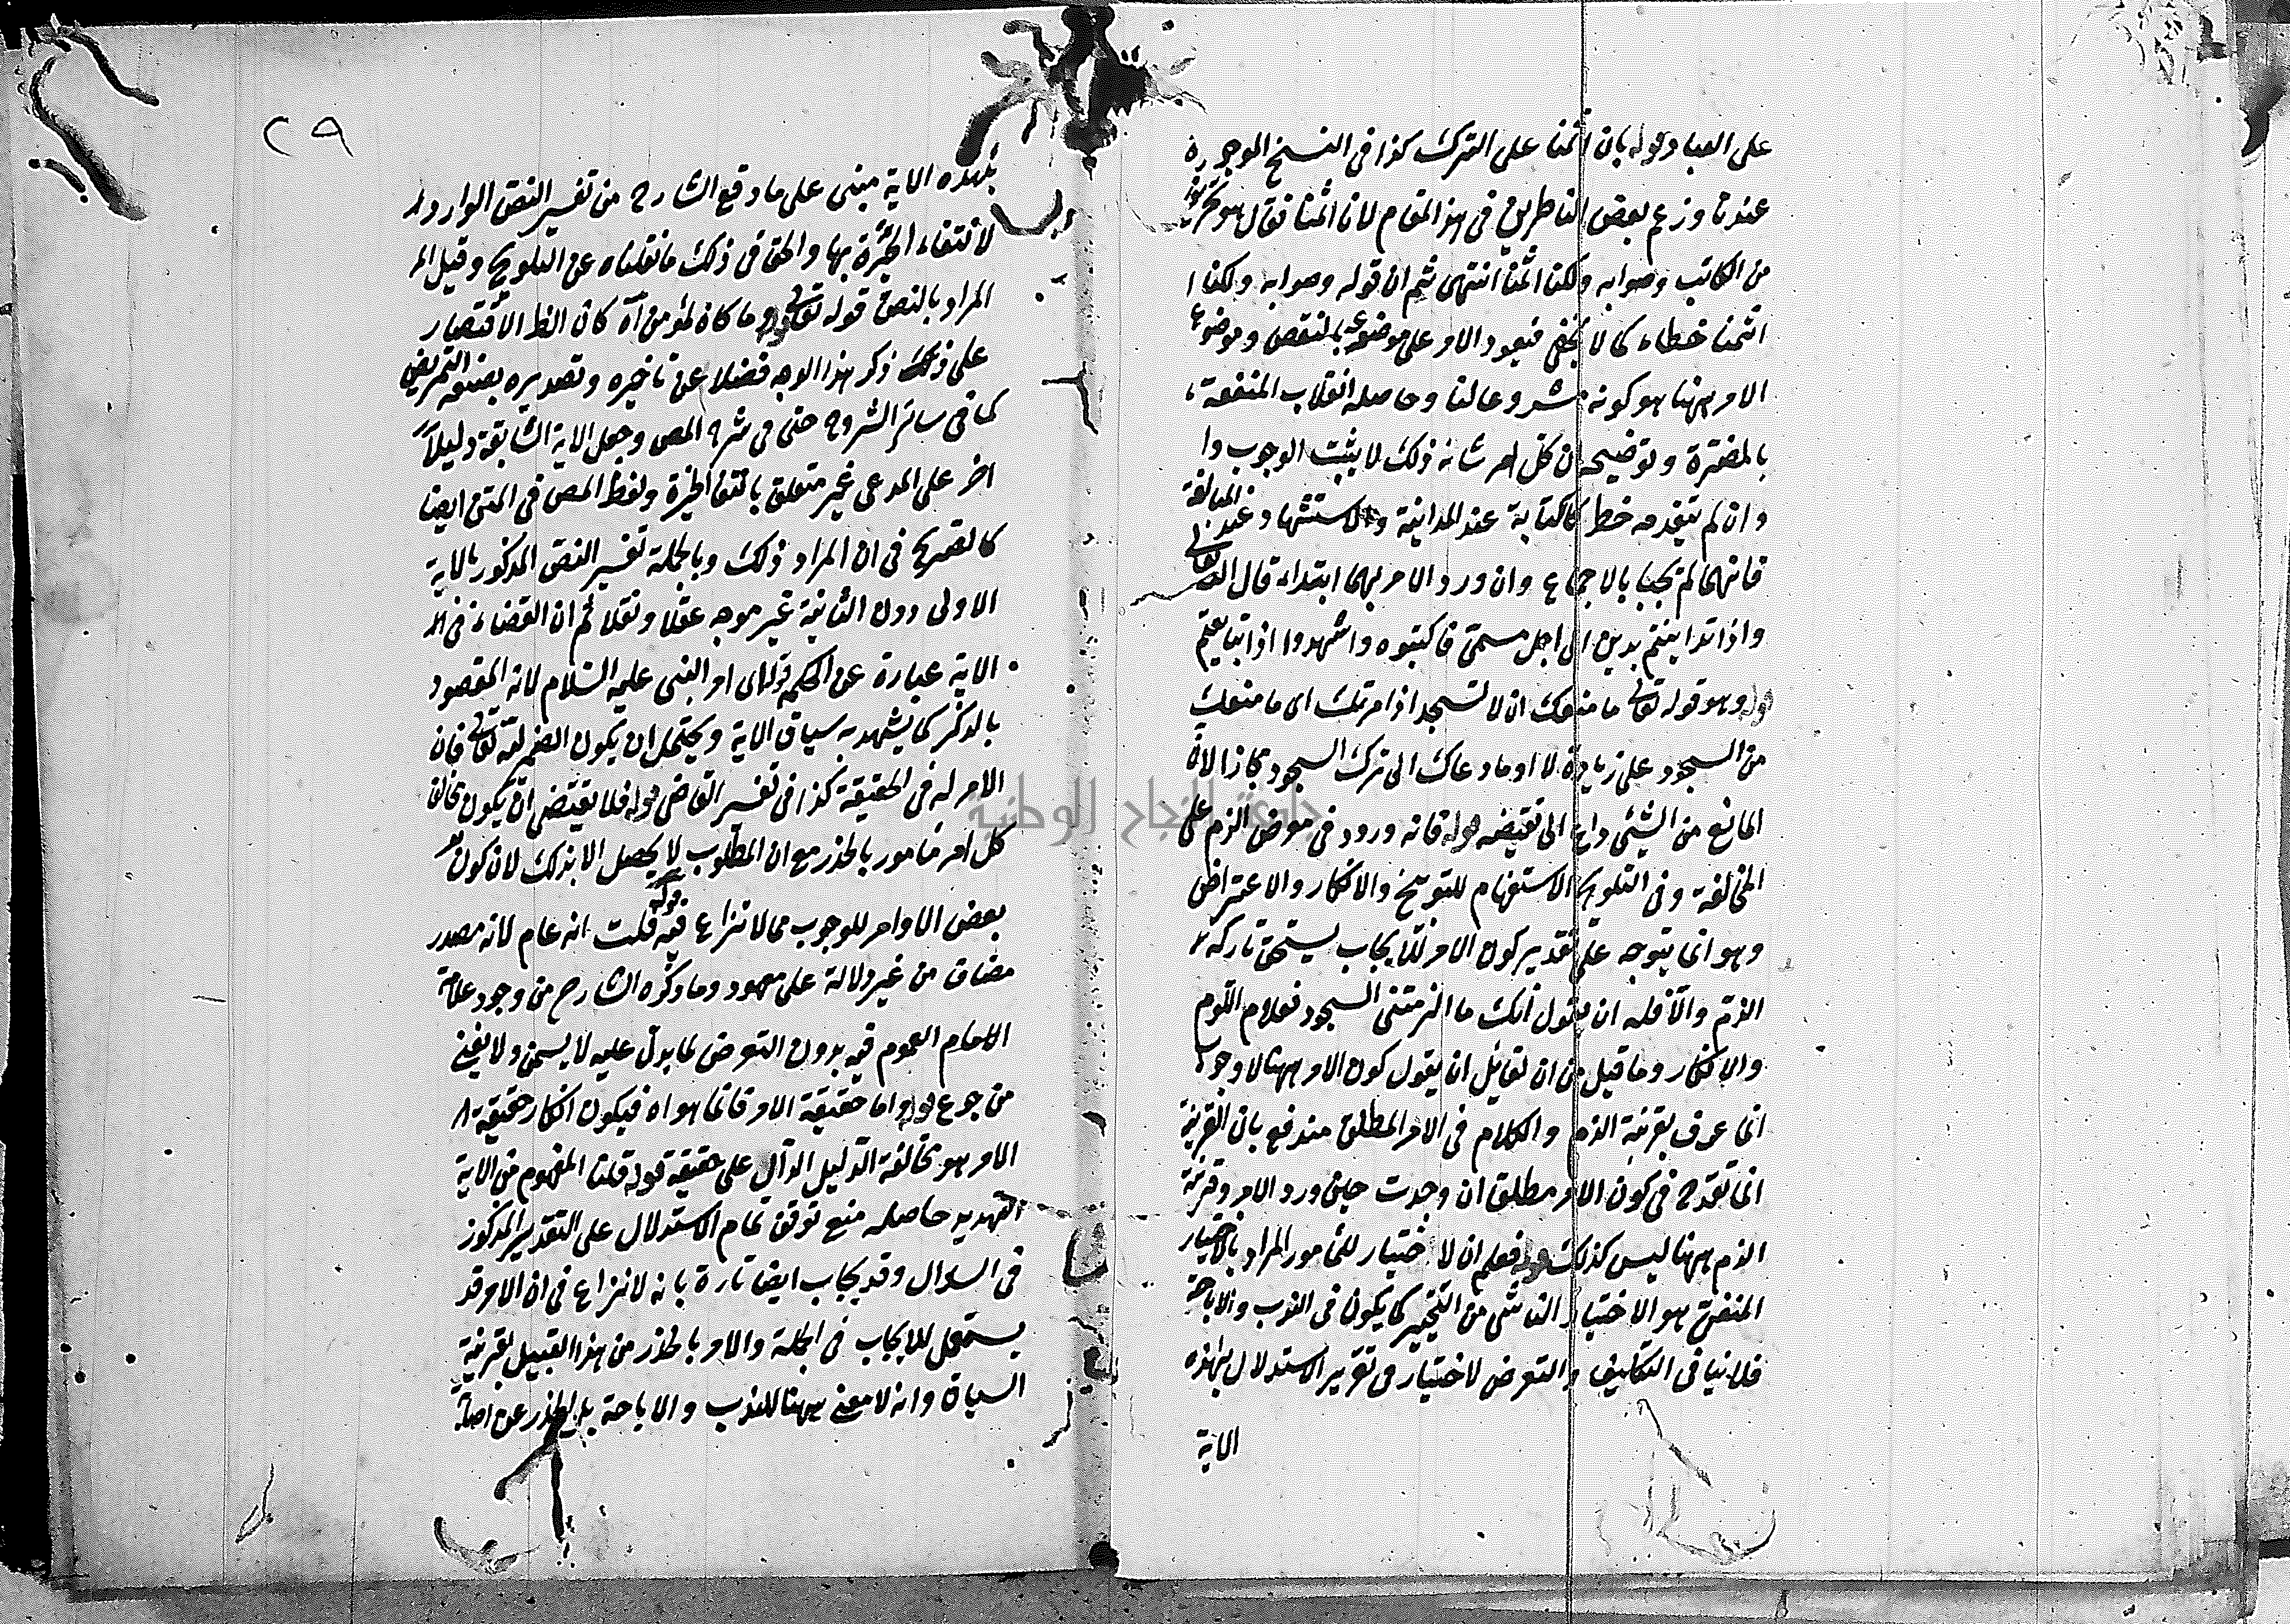 على العباد قوله بان اثمنا على الترك كذا فى النسخ الموجودة
عندنا وزعم بعض الناظرين فى هذا المقام لانا اثمنا فقال هو تحريف
من الكاتب وصوابه ولكنا اثمنا انتهى ثم ان قوله وصوابه ولكنا ا
اثمنا خطاء كما لا يخفى فيعود الامر على موضوعه بالنقص وموضوع
الامر ههنا هو كونه مشروعا لنا وحاصله انقلاب المنفعة
بالمضرة وتوضيحه ان كل امر شانه ذلك لا يثبت الوجوب وا
وان لم يتقدمه خطر كالكتابة عند المداينة والاستشهاد عند المبالغة
فانهما لم تجبا بالاجماع وان ورد الامر بهما ابتداء قال الله تعالى
واذا تداينتم بدين الى اجل مسمى فاكتبوه واشهدوا اذا تبايعتم
قوله وهو قوله تعالى ما منعك ان لا تسجد اذ امرتك اى ما منعك
من السجود على زيادة لا او ما دعاك الى ترك السجود مجازا لان
المانع من الشئ داع الى نقيضه قوله فانه ورود فى معرض الذم على
المخالفة وفى التلويح الاستفهام للتوبيخ والانكار والاعتراض
وهو انما يتوجه على تقدير كون الامر للايجاب يستحق تاركه
الذم والا فله ان يقول انك ما الزمتنى السجود فعلام اللوم
والانكار وما قيل من ان لقائل ان يقول كون الامر ههنا لا وجوب
انما عرف بقرينة الذم والكلام فى الامر المطلق مندفع بان القرينة
انما تقدح فى كون الامر مطلقا ان وجدت حين ورود الامر وقرينة
الذم ههنا ليس كذلك قوله فعلم ان لا اختيار للمأمور المراد بالاختيار
المنفى هو الاختيار الناشى من التخيير كما يكون فى الندب والاباحة
فلا ينافى التكليف والتعرض لاختيار فى تقرير الاستدلال بهذه
الاية
٢٩
بهذه الاية مبنى على ما وقع الشارح من تفسير النص الوارد
لانتفاء الخيرة بها والحق فى ذلك ما نقلناه عن التلويح وقيل
المراد بالنص قوله تعالى وما كان لمؤمن اه كان الظ الاقتصار
على ذلك ذكر هذا الوجه فضلا عن تاخيره وتصديره بصيغة التمريض
كما فى سائر الشروح حتى فى شرح المص وجعل الاية السابقة دليلا
اخر على المدعى غير متعلق بانتفا الخيرة ولفظ المص فى المتن ايضا
كالصريح فى ان المراد ذلك وبالجملة تفسير النص المذكور بالاية
الاولى دون الثانية غير موجه عقلا ونقلا ثم ان القضاء فى
الاية عبارة عن الحكم قوله اى امر النبى عليه السلام لانه المقصود
بالذكر كما يشهد به سياق الاية ويحتمل ان يكون الضمير لله تعالى فان
الامر له فى الحقيقة كذا فى تفسير القاضى قوله فلا يقتضى ان يكون مخالفا
كل امر مأمور بالحذر مع ان المطلوب لا يحصل الا بذلك لان كون
بعض الاوامر للوجوب مما لا نزاع فيه قوله قلت انه عام لانه مصدر
مضاف من غير دلالة على معهود وما ذكره الشارح من وجود علامة
العموم فيه بدون التعرض لما يدل عليه لا يسمن ولا يغنى
من جوع قوله واما حقيقة الامر فانما هو اه فيكون انكار حقيقة
الامر هو مخالفة الدليل الدال على حقيقة قوله قلنا المفهوم من الاية
التهديد حاصله منع توقف تمام الاستدلال على التقدير المذكور
فى السوال وقد يجاب ايضا تارة بانه لا نزاع فى ان الامر قد
يستعمل للايجاب فى الجملة والامر بالحذر من هذا القبيل بقرينة
السياق وانه لا معنى ههنا للندب والاباحة بل الحذر عن اصابة
جامعة النجاح الوطنية